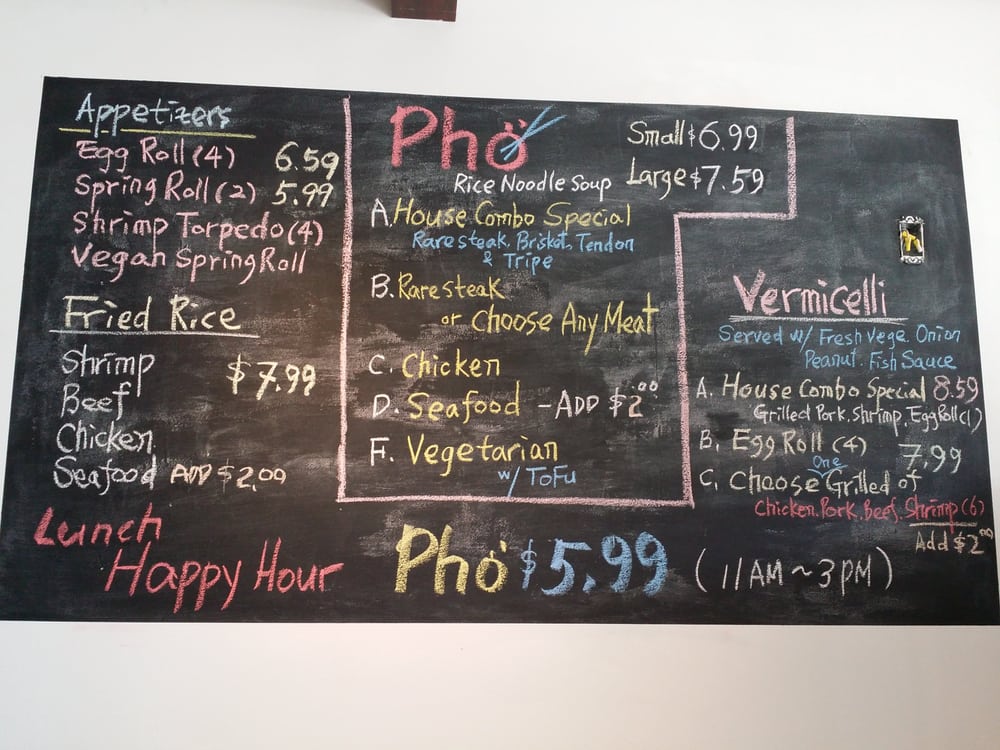 Appetizers
Egg Roll (4) 6.59
Spring Roll (2) 5.99
Shrimp Torpedo (4)
Vegan Spring Roll
Fried Rice
Shrimp $7.99
Beef
Chicken
Seafood ADD $2.00
Phở
Small $6.99
Rice Noodle Soup Large $7.59
A. House Combo Special
Rare steak, Brisket, Tendon
& Tripe
B. Rare steak
or Choose Any Meat
C. Chicken
D. Seafood - ADD $2.00
F. Vegetarian
w/ ToFu
Vermicelli
Served w/ Fresh Vege. Onion
Peanut. Fish Sauce
A. House Combo Special 8.59
Grilled Pork, Shrimp, Egg Roll (1)
B. Egg Roll (4) 7.99
C. Choose One Grilled of
Chicken, Pork, Beef, Shrimp (6)
Add $2.00
Lunch
Happy Hour Phở $5.99 (11AM ~ 3PM)